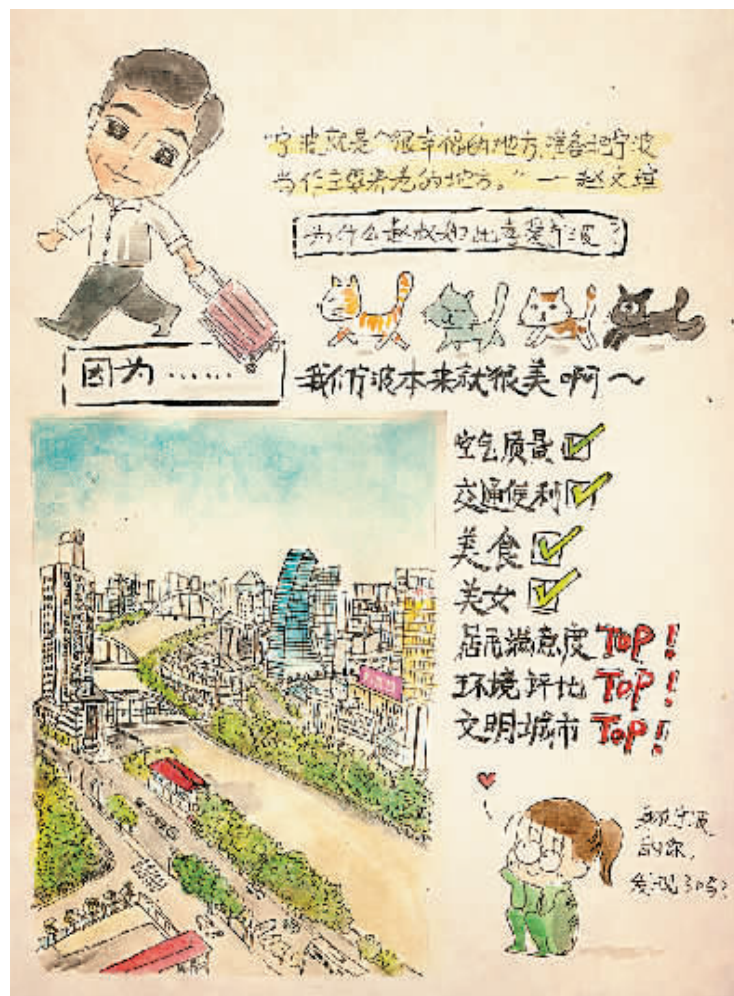 “宁波就是个很幸福的地方,准备把宁波
当作主要养老的地方。” — 赵文瑄
为什么赵叔如此喜爱宁波?
因为……
我们宁波本来就很美啊～
空气质量
交通便利
美食
美女
居民满意度 TOP!
环境评比 TOP!
文明城市 TOP!
身在宁波
的你,
发现了吗?